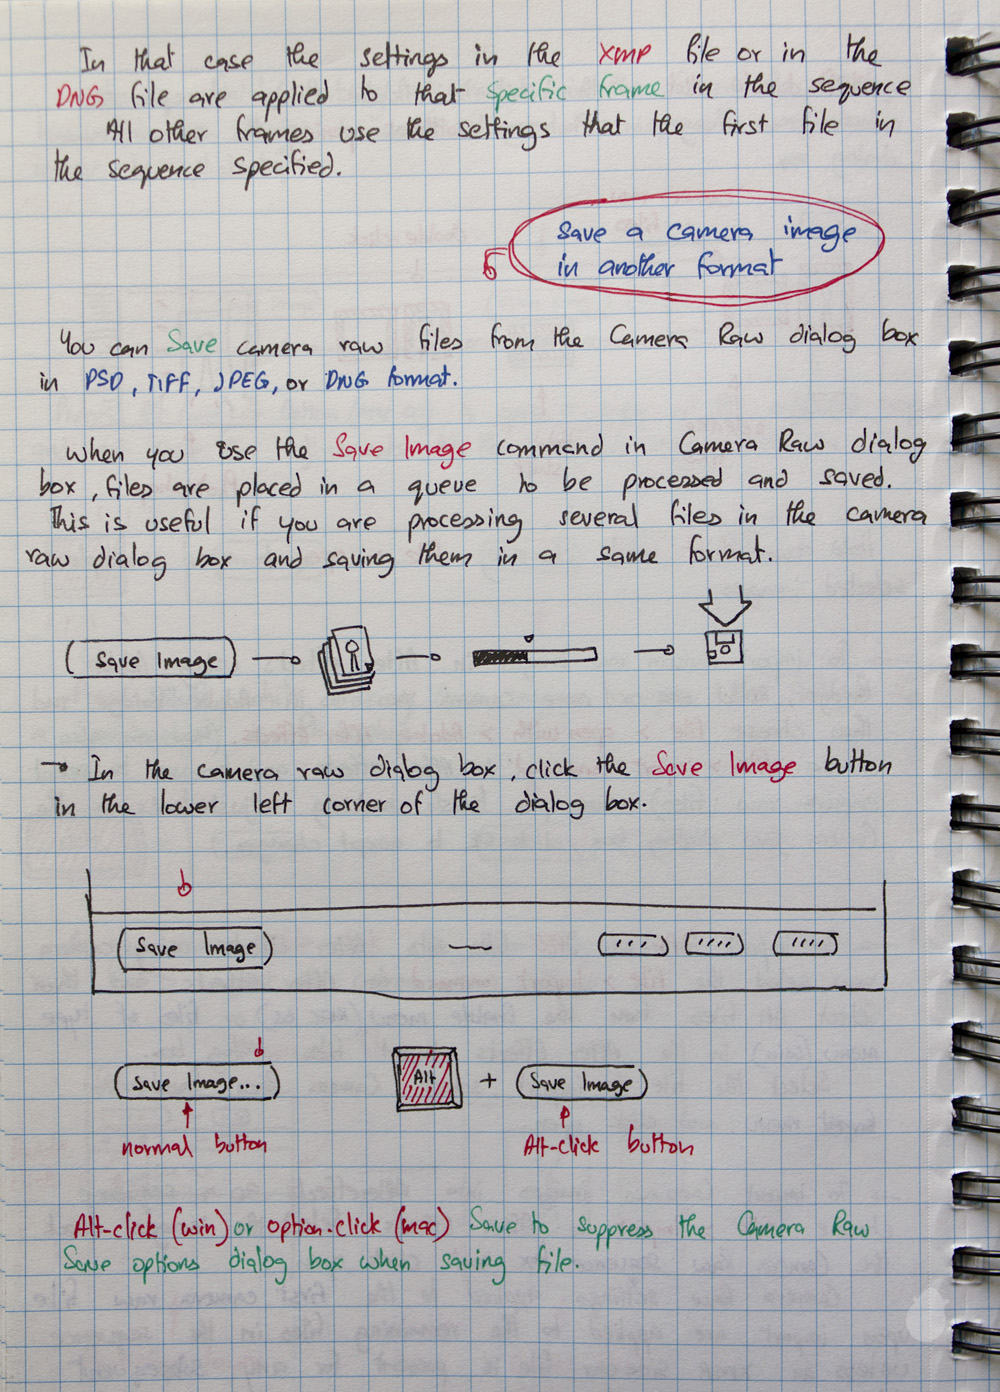 In that case the settings in the XMP file or in the
DNG file are applied to that specific frame in the sequence
All other frames use the settings that the first file in
the sequence specified.
Save a camera image
in another format
You can Save camera raw files from the Camera Raw dialog box
in PSD, TIFF, JPEG, or DNG format.
When you use the Save Image command in Camera Raw dialog
box, files are placed in a queue to be processed and saved.
This is useful if you are processing several files in the camera
raw dialog box and saving them in a same format.
Save Image
→ In the camera raw dialog box, click the Save Image button
in the lower left corner of the dialog box.
Save Image
Save Image...
Alt + Save Image
normal button
Alt-click button
Alt-click (win) or option-click (mac) Save to suppress the Camera Raw
Save options dialog box when saving file.